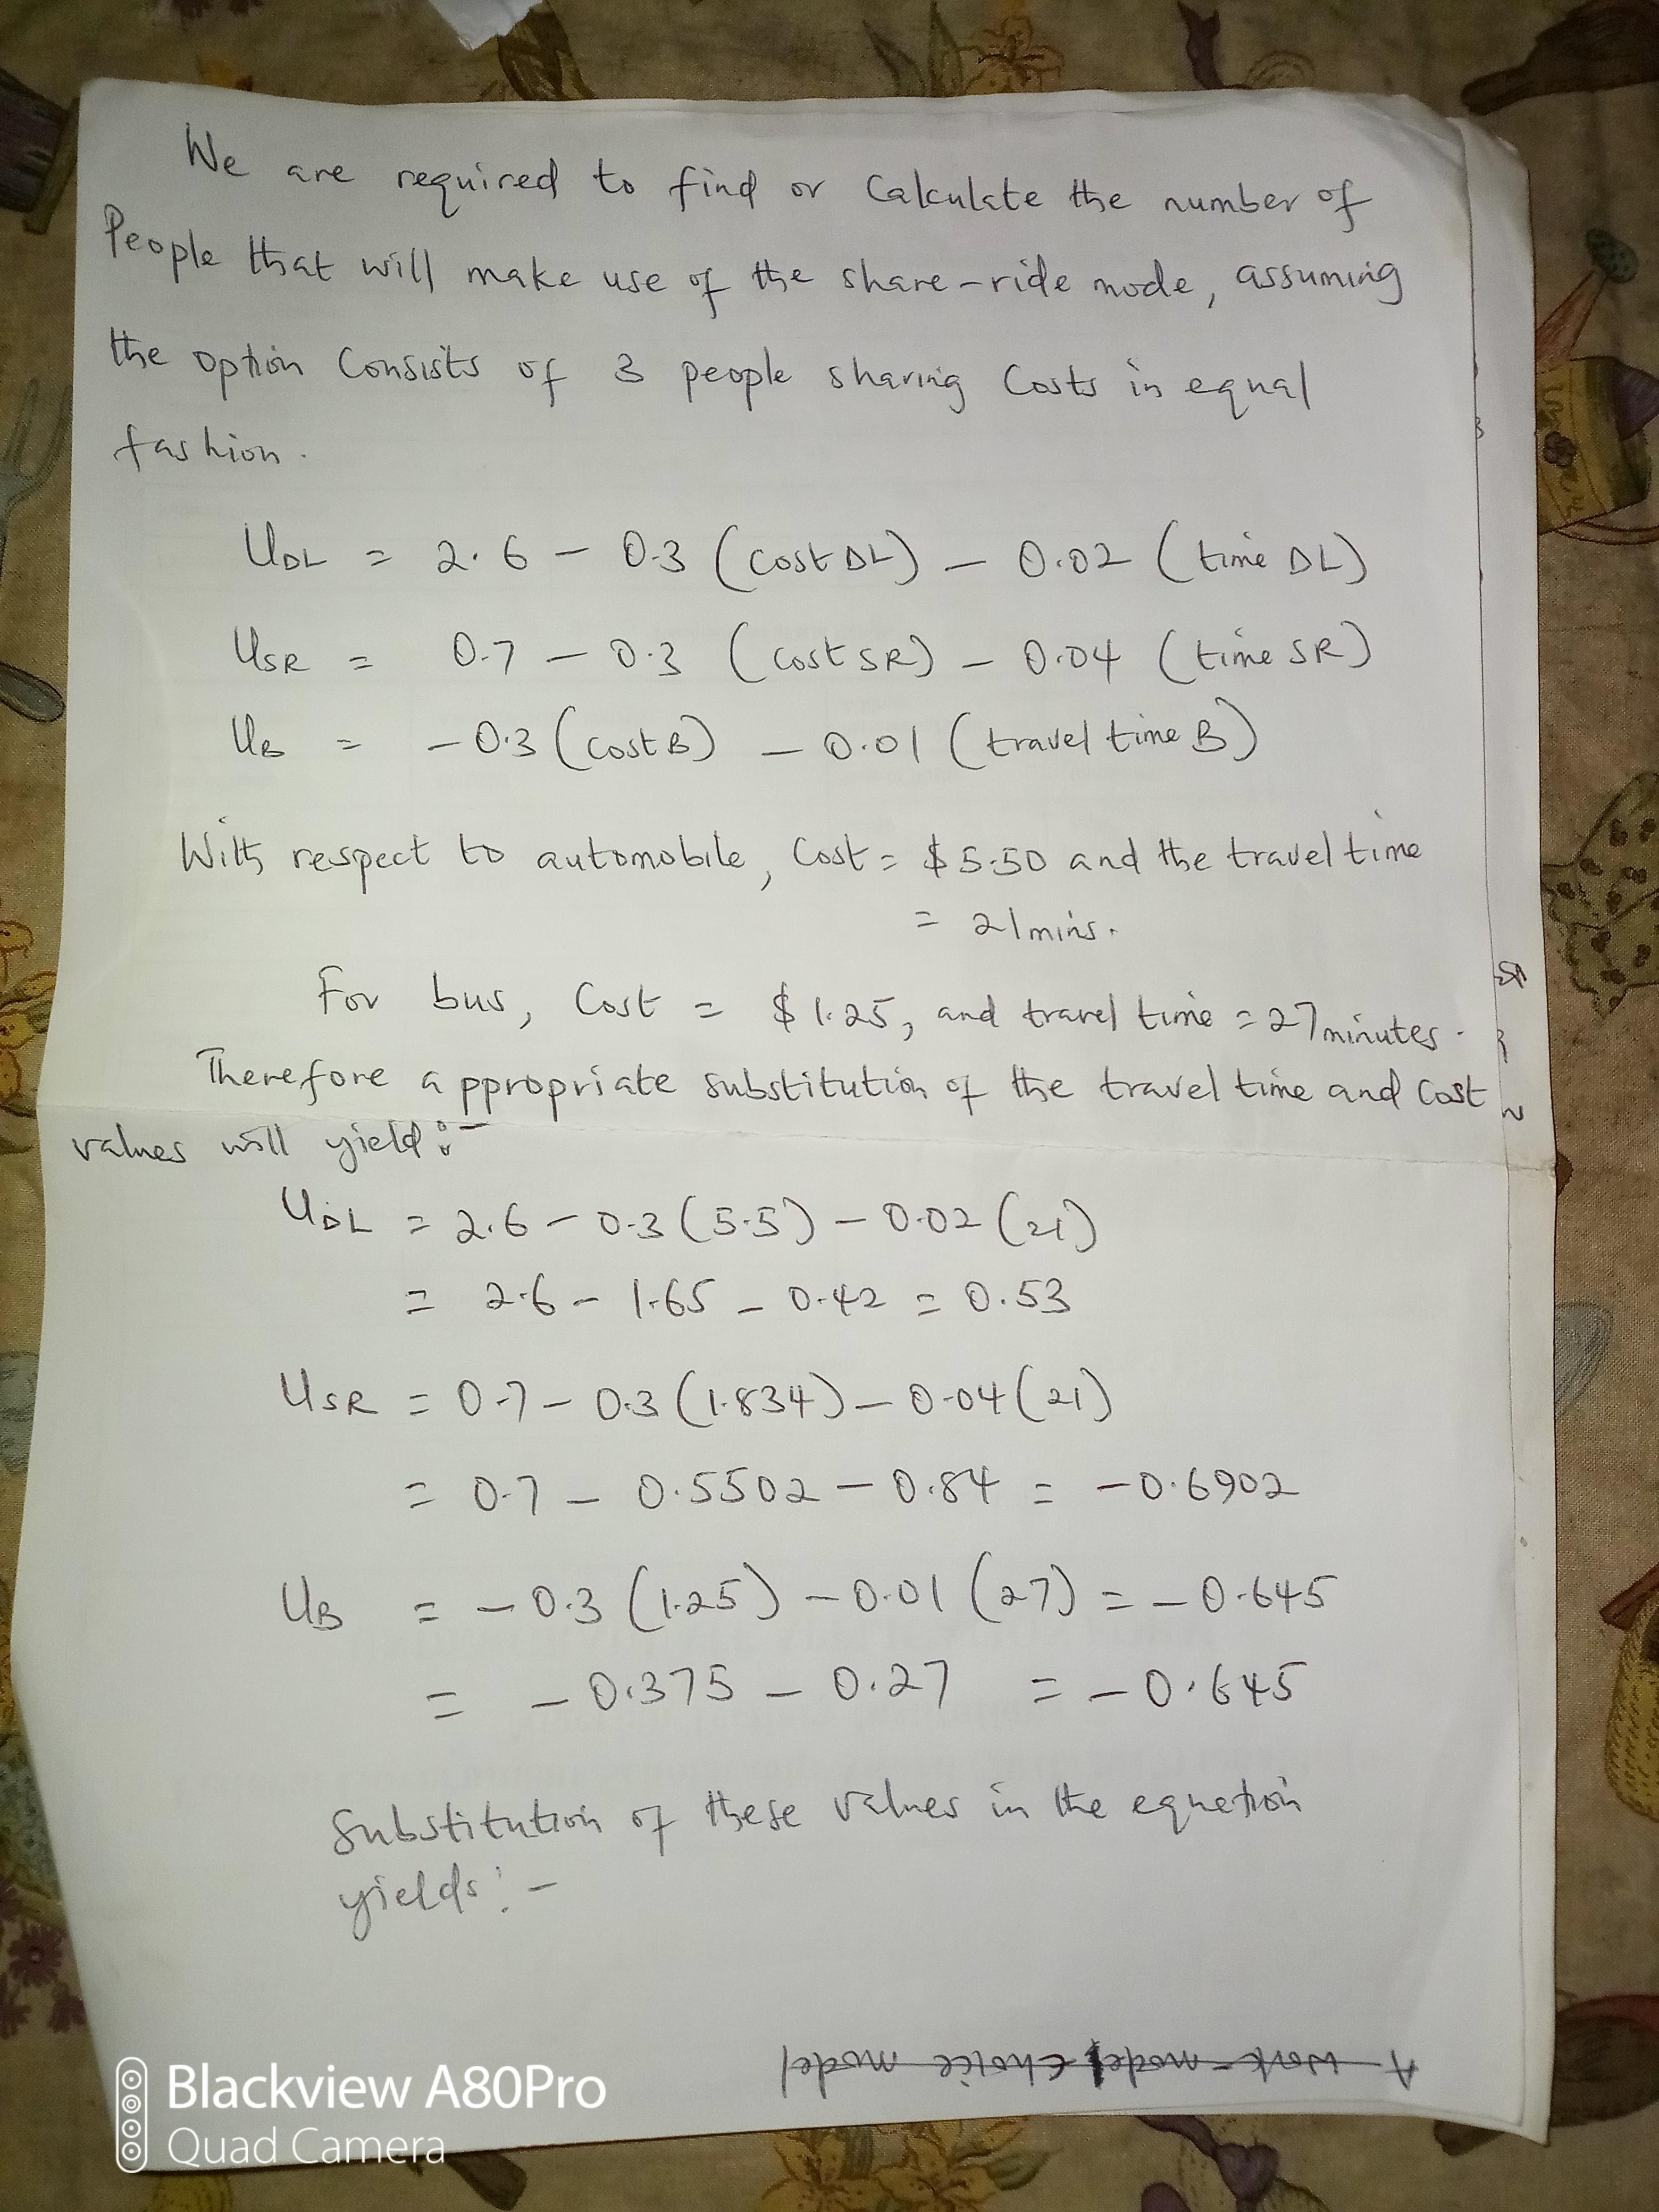 We are required to find or Calculate the number of
People that will make use of the share-ride mode, assuming
the option Consists of 3 people sharing Costs in equal
fashion.
UDL = 2.6 - 0.3 (cost DL) - 0.02 (time DL)
USR = 0.7 - 0.3 (cost SR) - 0.04 (time SR)
UB = -0.3 (cost B) - 0.01 (travel time B)
With respect to automobile, Cost = $5.50 and the travel time
= 21 mins.
For bus, Cost = $1.25, and travel time = 27 minutes.
Therefore appropriate substitution of the travel time and cost
values will yield:-
UDL = 2.6 - 0.3 (5.5) - 0.02 (21)
= 2.6 - 1.65 - 0.42 = 0.53
USR = 0.7 - 0.3 (1.834) - 0.04 (21)
= 0.7 - 0.5502 - 0.84 = -0.6902
UB = -0.3 (1.25) - 0.01 (27) = -0.645
= -0.375 - 0.27 = -0.645
Substitution of these values in the equation
yields:-
A work-model choice model
Blackview A80Pro
Quad Camera